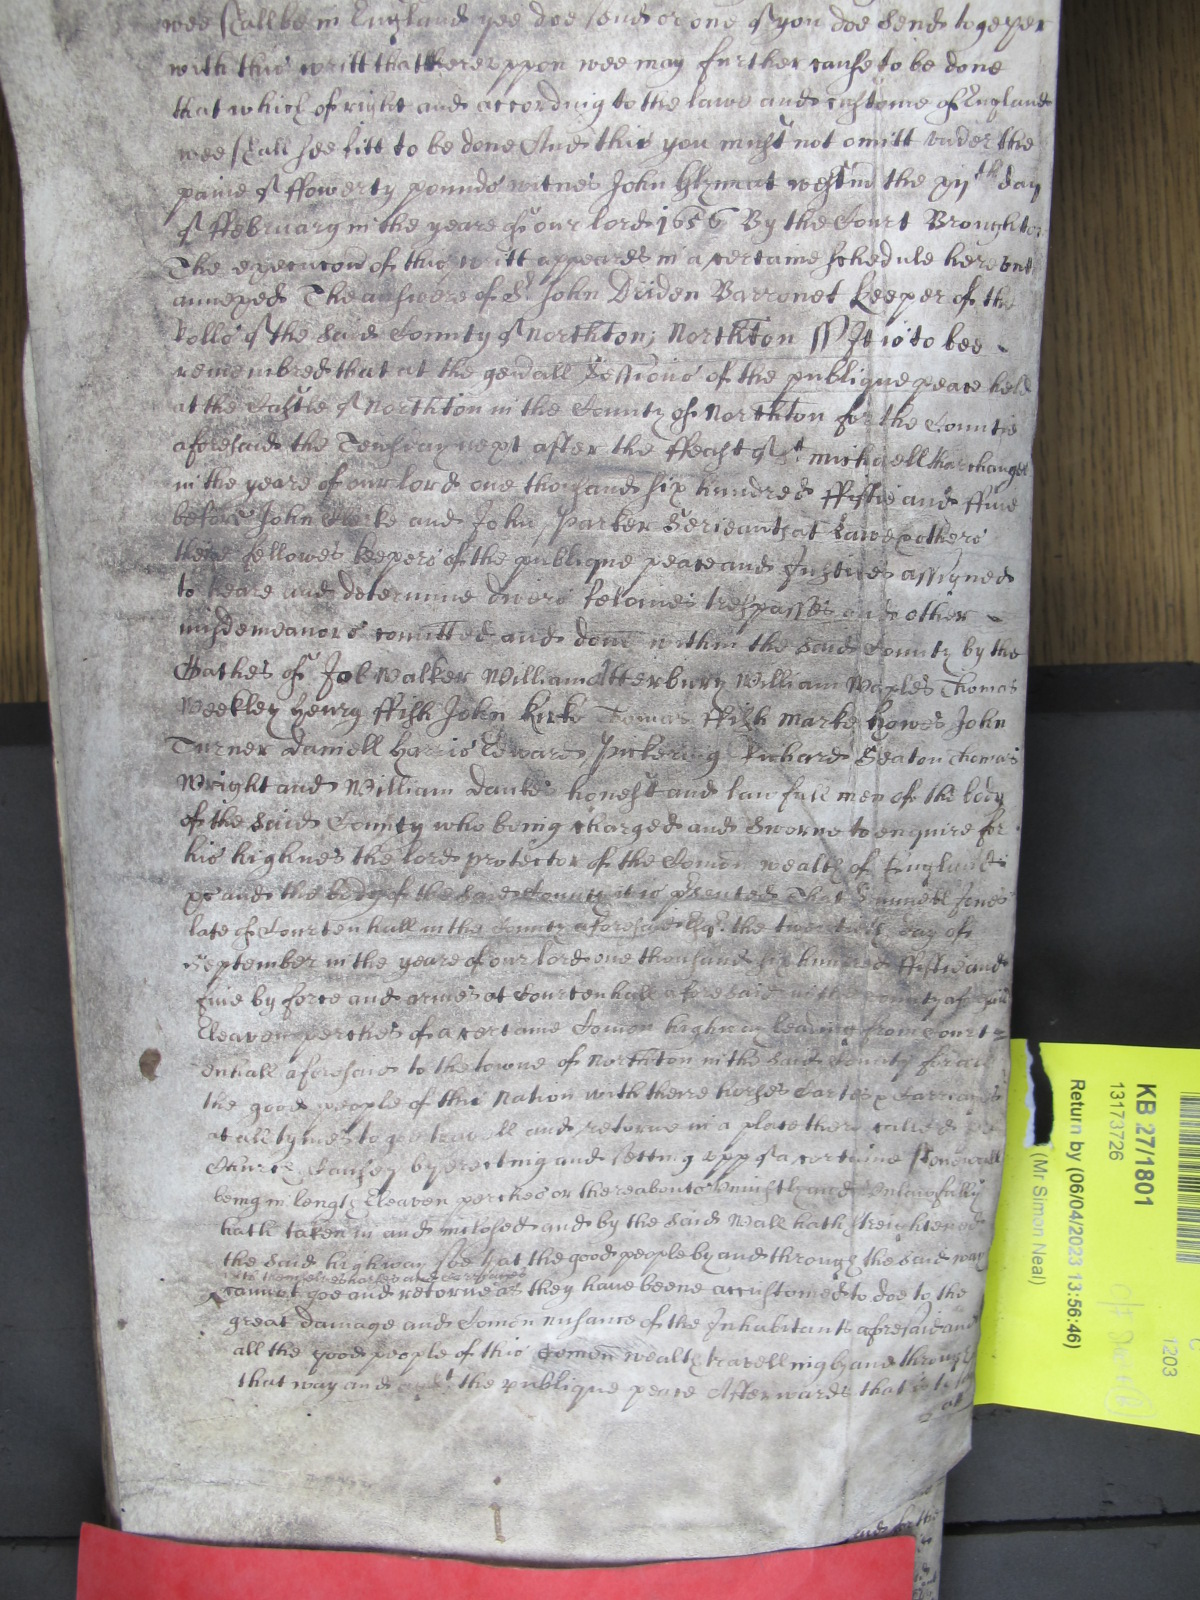 wee shall be in England yee doe send or one of you doe send together
with this writt that thereuppon wee may further cause to be done
that which of right and according to the laws and custome of England
wee shall see fitt to be done And this you must not omitt under the
paine of ffowerty pounds witnes John Glynn at westm the xijth day
of ffebruary in the yeare of our lord 1656 By the Court Broughton
The execucon of this writt appeares in a certaine schedule hereunto
annexed The answere of Sr John Driden Barronet keeper of the
Rolls of the said County of Northton; Northton ss It is to bee
remembred that at the gen'all Sessions of the publique peace held
at the Castle of Northton in the County of Northton for the Countie
aforesaid the Tewsday next after the ffeast of St Michaell tharchangel
in the yeare of our lord one thousand six hundred ffiftie and ffive
before John Clerke and John Parker Serieant at Lawe & others
there fellowes keepers of the publique peace and Justices assigned
to heare and determine divers felonies trespasses and other
misdemeanors comitted and done within the said County by the
Oathes of Job Walker William Atterbury William Maples Thomas
Weekley Henry ffish John Kirke Thomas ffish Marke Howes John
Turner Daniell Harris Edward Pickering Richard Seaton Thomas
Wright and William Dankes honest and lawfull men of the body
of the said County who being charged and sworne to enquire for
his highnes the lord protector of the Comon wealth of England
&c and the body of the said County it is p'sented That Samuell Jones
late of Courtenhall in the County aforesaid Esqr. the twentieth day of
September in the yeare of our lord one thousand six hundred ffiftie and
five by force and armes at Courtenhall aforesaid in the County aforesaid
Eleaven perches of a certaine Comon highway leading from Court
enhall aforesaid to the towne of Northton in the said County for all
the good people of this Nation with there horses Cartes & Carriages
at all tymes to goe travell and retorne in a place there called
Church Causey by erecting and setting upp of a certaine stonewall
being in length Eleaven perches or thereabouts uniustly and unlawfully
hath taken in and inclosed and by the said Wall hath streightened
the said highway soe that the good people by and through the said way
with themselves horses and carriages
cannot goe and retorne as they have beene accustomed to doe to the
great damage and Comon nusance of the Inhabitants aforesaid and
all the good people of this Comon wealth travelling by and through
that way and agt. the publique peace Afterwards that is to say
at
KB 27/1801
13173726
Return by (06/04/2023 13:56:46)
(Mr Simon Neal)
1203